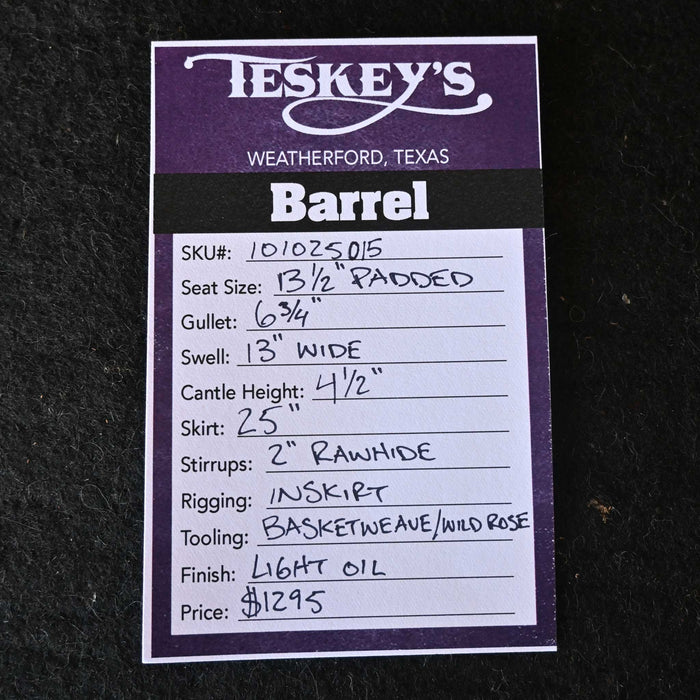 TESKEY'S
WEATHERFORD, TEXAS
Barrel
SKU#: 101025015
Seat Size: 13 1/2" PADDED
Gullet: 6 3/4"
Swell: 13" WIDE
Cantle Height: 4 1/2"
Skirt: 25"
Stirrups: 2" RAWHIDE
Rigging: INSKIRT
Tooling: BASKETWEAVE/WILD ROSE
Finish: LIGHT OIL
Price: $1295